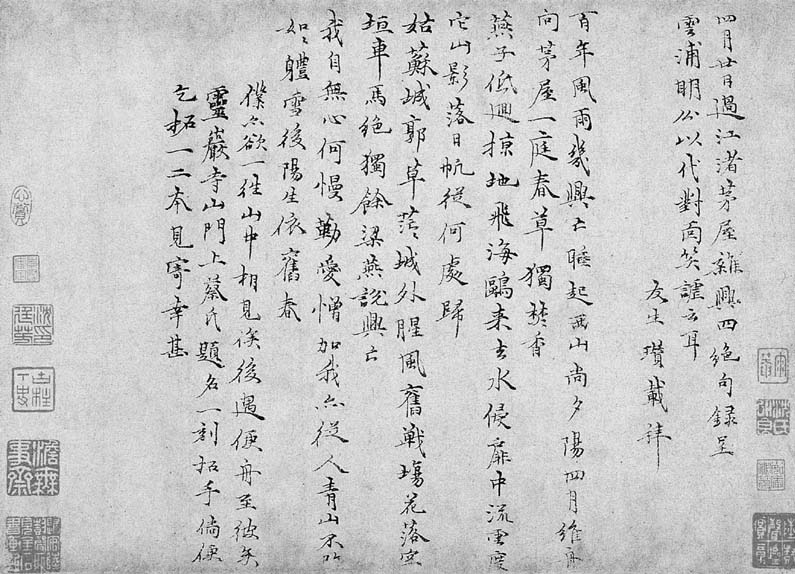 四月廿日過江渚茅屋雜興四絕句錄呈
雲浦明公以代對面笑謔云耳
友生瓚載拜
百年風雨幾興亡睡起西山尚夕陽四月維舟
向茅屋一庭春草獨焚香
燕子低迴掠地飛海鷗來去水侵扉中流雲度
它山影落日帆從何處歸
姑蘇城郭草茫〻城外腥風舊戰場花落空
垣車馬絕獨餘梁燕說興亡
我自無心何慢勤愛憎加我亦從人青山不改
如〻體雪後陽生依舊春
僕亦欲一徃山中相見俟後遇便舟至彼矣
靈巖寺山門上蔡氏題名一刻拓手倘便
乞拓一二本見寄幸甚